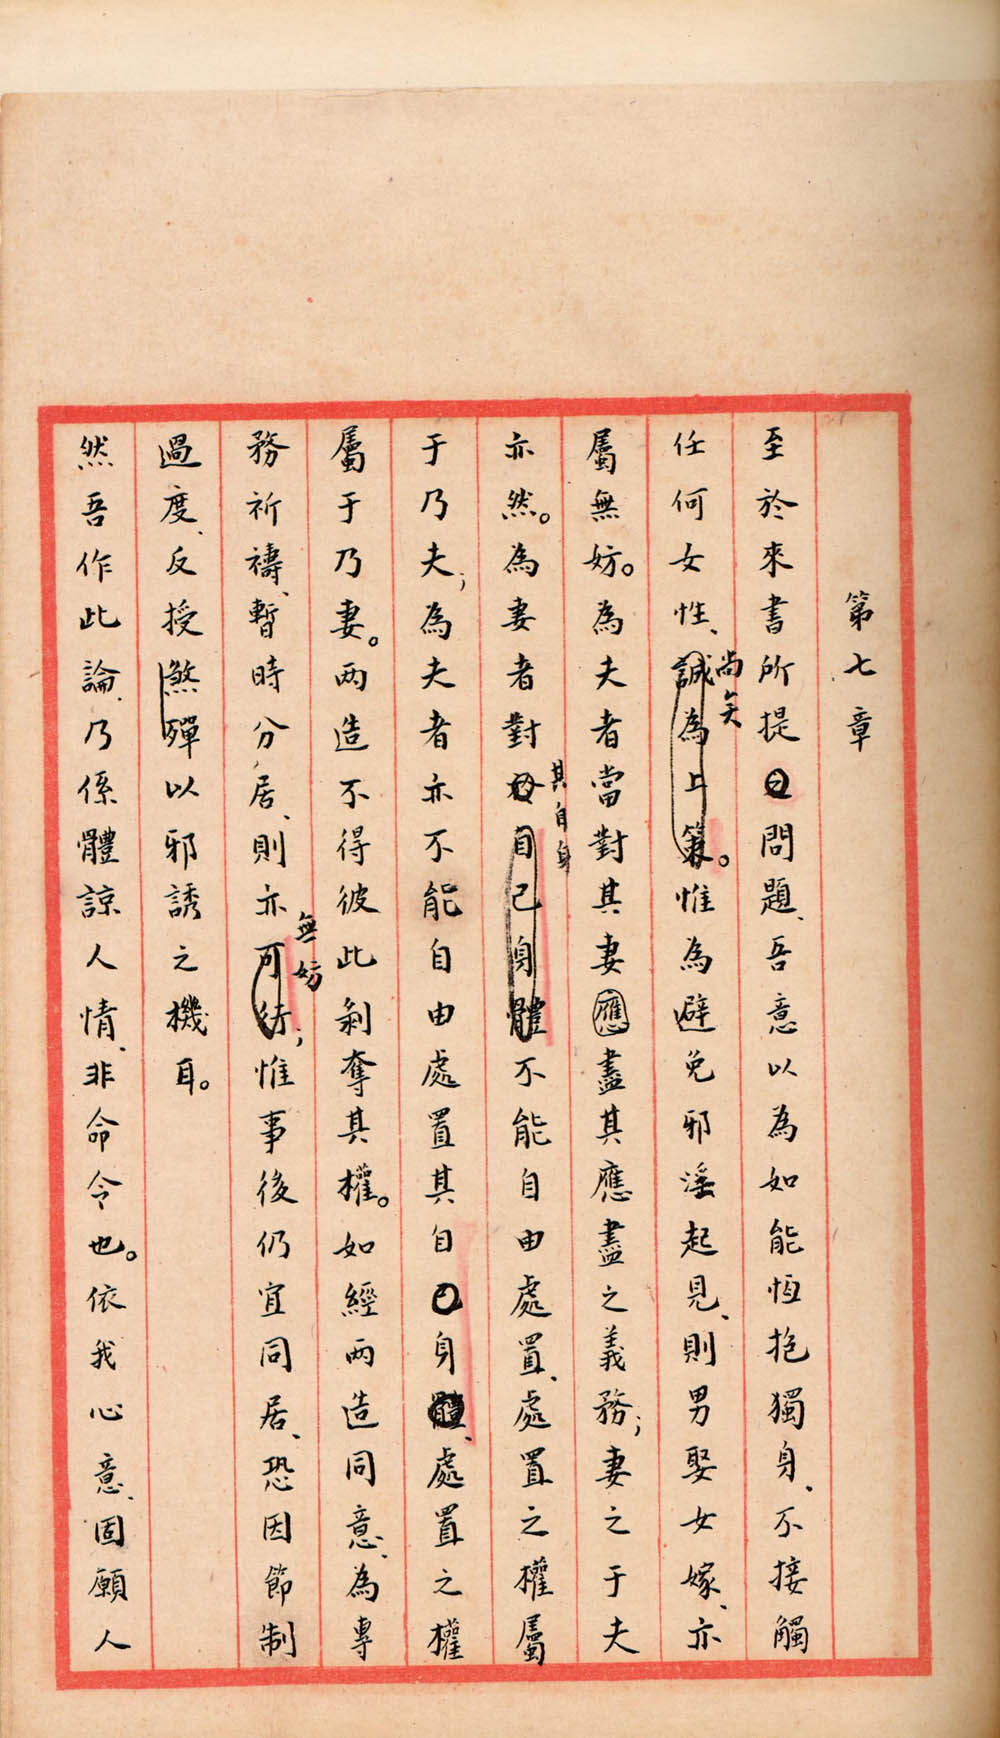 第七章
至於來書所提問題、吾意以為如能恆抱獨身、不接觸
任何女性、誠為上策。尚矣惟為避免邪淫起見、則男娶女嫁、亦
屬無妨。為夫者當對其妻應盡其應盡之義務；妻之于夫
亦然。為妻者對自己身體其自身不能自由處置、處置之權屬
于乃夫；為夫者亦不能自由處置其自身體、處置之權
屬于乃妻。兩造不得彼此剝奪其權。如經兩造同意、為專
務祈禱、暫時分居、則亦可行無妨；惟事後仍宜同居、恐因節制
過度、反授煞殫以邪誘之機耳。
然吾作此論、乃係體諒人情、非命令也。依我心意、固願人